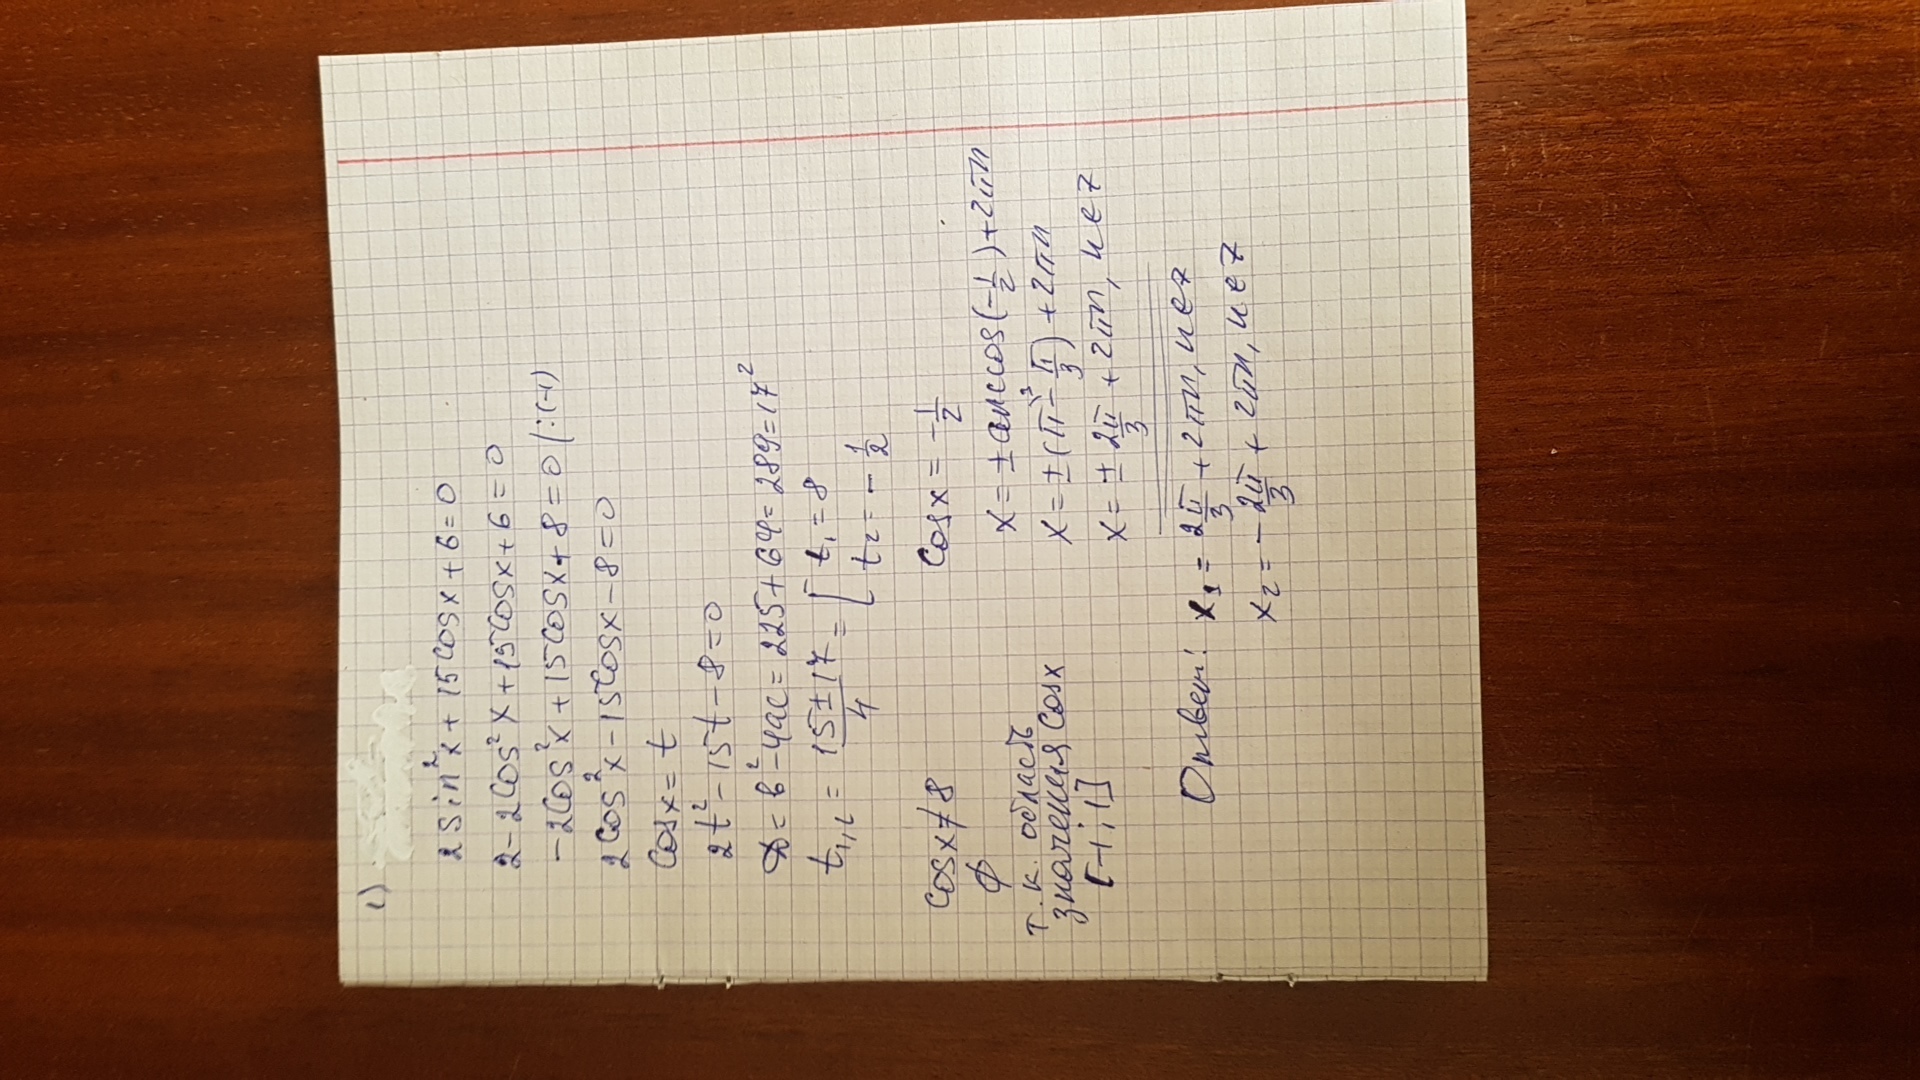 1)
2 sin² x + 15 cos x + 6 = 0
2 - 2cos² x + 15cos x + 6 = 0
-2cos² x + 15cos x + 8 = 0 |:(-1)
2cos² x - 15cos x - 8 = 0
cos x = t
2t² - 15t - 8 = 0
D = b² - 4ac = 225 + 64 = 289 = 17²
t₁,₂ = (15 ± 17)/4 = [ t₁ = 8
t₂ = -1/2
cos x ≠ 8 cos x = -1/2
∅ x = ± arccos(-1/2) + 2πn
т.к. область x = ±(π - π/3) + 2πn
значения cos x x = ± 2π/3 + 2πn, n∈Z
[-1; 1]
Ответ: x₁ = 2π/3 + 2πn, n∈Z
x₂ = -2π/3 + 2πn, n∈Z